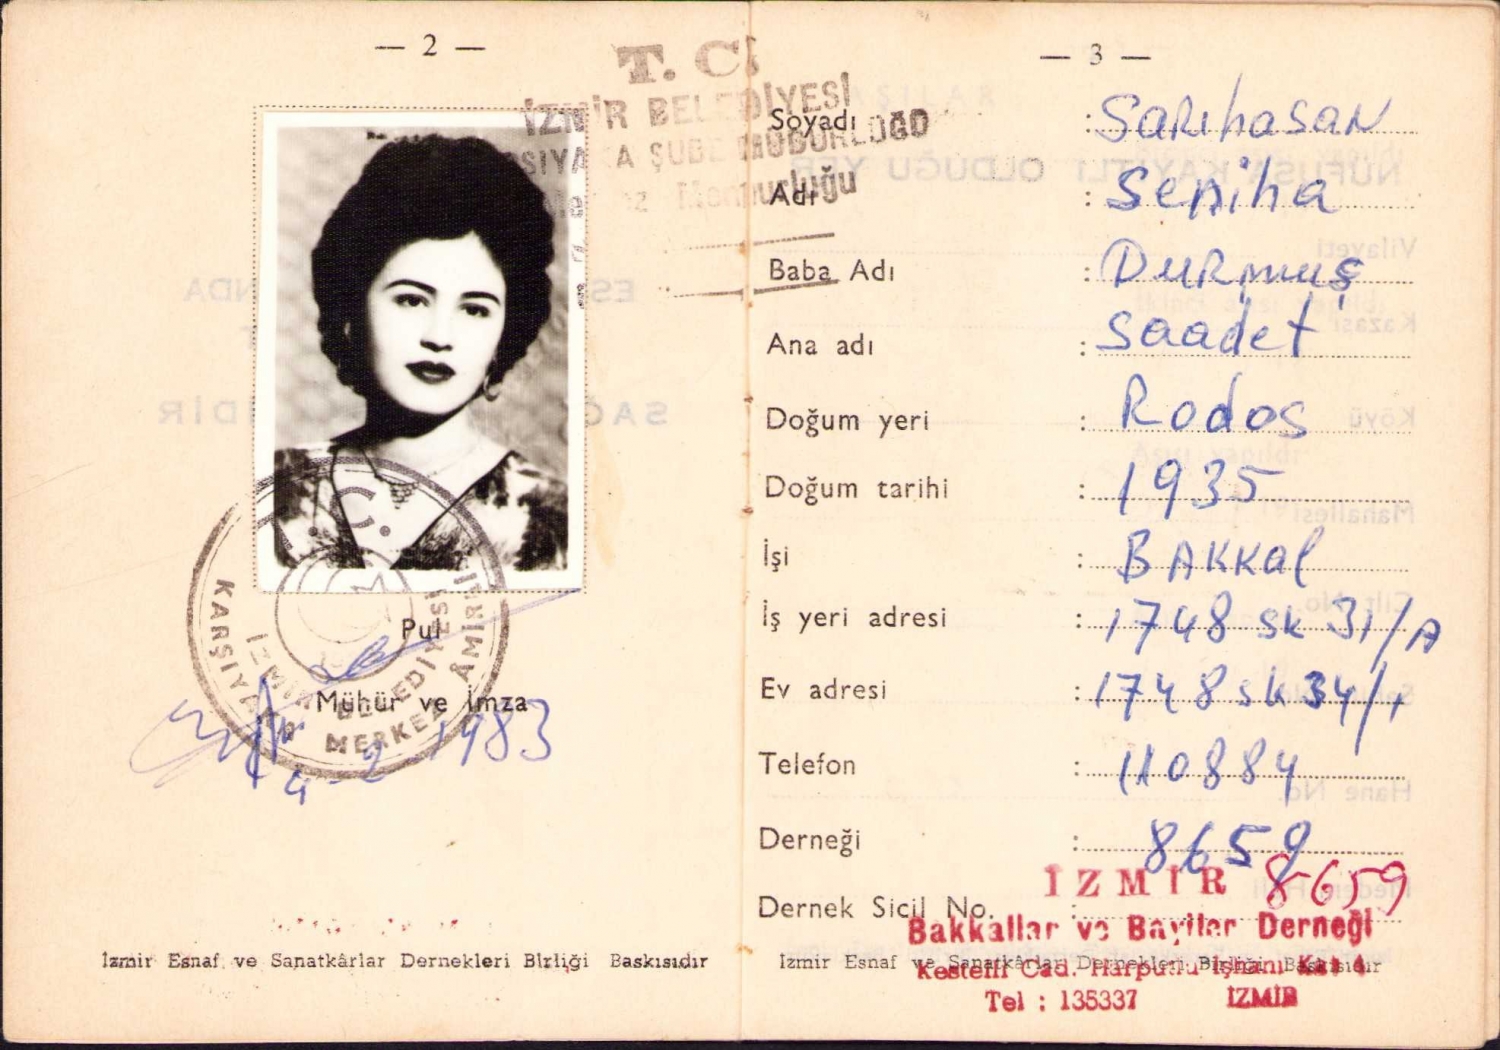 — 2 —
T. C.
İZMİR BELEDİYESİ
ŞUBE MÜDÜRLÜĞÜ
Memurluğu
T. C.
KARŞIYAKA MERKEZ ÂMİRLİĞİ
İZMİR BELEDİYESİ
Pul
Mühür ve İmza
4-2 1983
İzmir Esnaf ve Sanatkârlar Dernekleri Birliği Baskısıdır
— 3 —
Soyadı : Sarıhasan
Adı : Seniha
Baba Adı : Durmuş
Ana adı : Saadet
Doğum yeri : Rodos
Doğum tarihi : 1935
İşi : BAKKal
İş yeri adresi : 1748 sk 31/A
Ev adresi : 1748 sk 34/1
Telefon : 110884
Derneği : 8659
Dernek Sicil No. :
İZMİR 8659
Bakkallar ve Bayiler Derneği
İzmir Esnaf ve Sanatkârlar Dernekleri Birliği Baskısıdır
Kestelli Cad. Harputlu İşhanı Kat 4
Tel : 135337 İZMİR